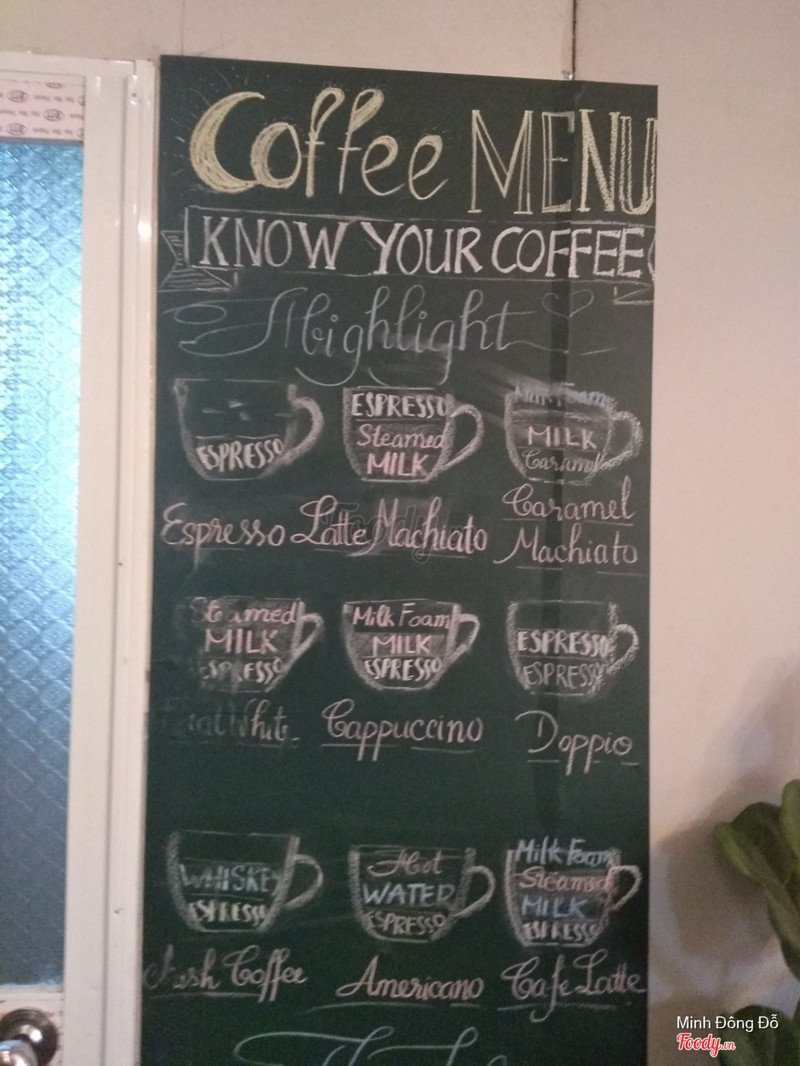 Coffee MENU
KNOW YOUR COFFEE
Highlight
ESPRESSO
Espresso
ESPRESSO
Steamed
MILK
Latte Machiato
Milk Foam
MILK
Caramel
Caramel
Machiato
Steamed
MILK
ESPRESSO
Flat White
Milk Foam
MILK
ESPRESSO
Cappuccino
ESPRESSO
ESPRESSO
Doppio
WHISKEY
ESPRESSO
Coffee
Hot
WATER
ESPRESSO
Americano
Milk Foam
Steamed
MILK
ESPRESSO
Cafe Latte
Minh Đông Đỗ
Foody.vn